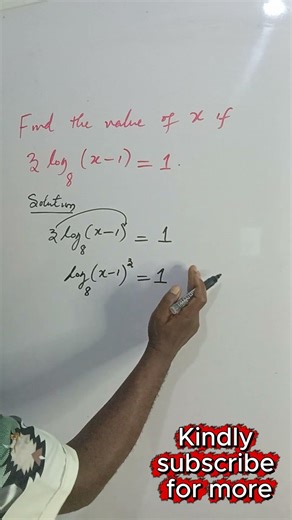 Find the value of x if
3 log₈ (x-1) = 1.
Solution
3 log₈ (x-1) = 1
log₈ (x-1)³ = 1
Kindly
subscribe
for more